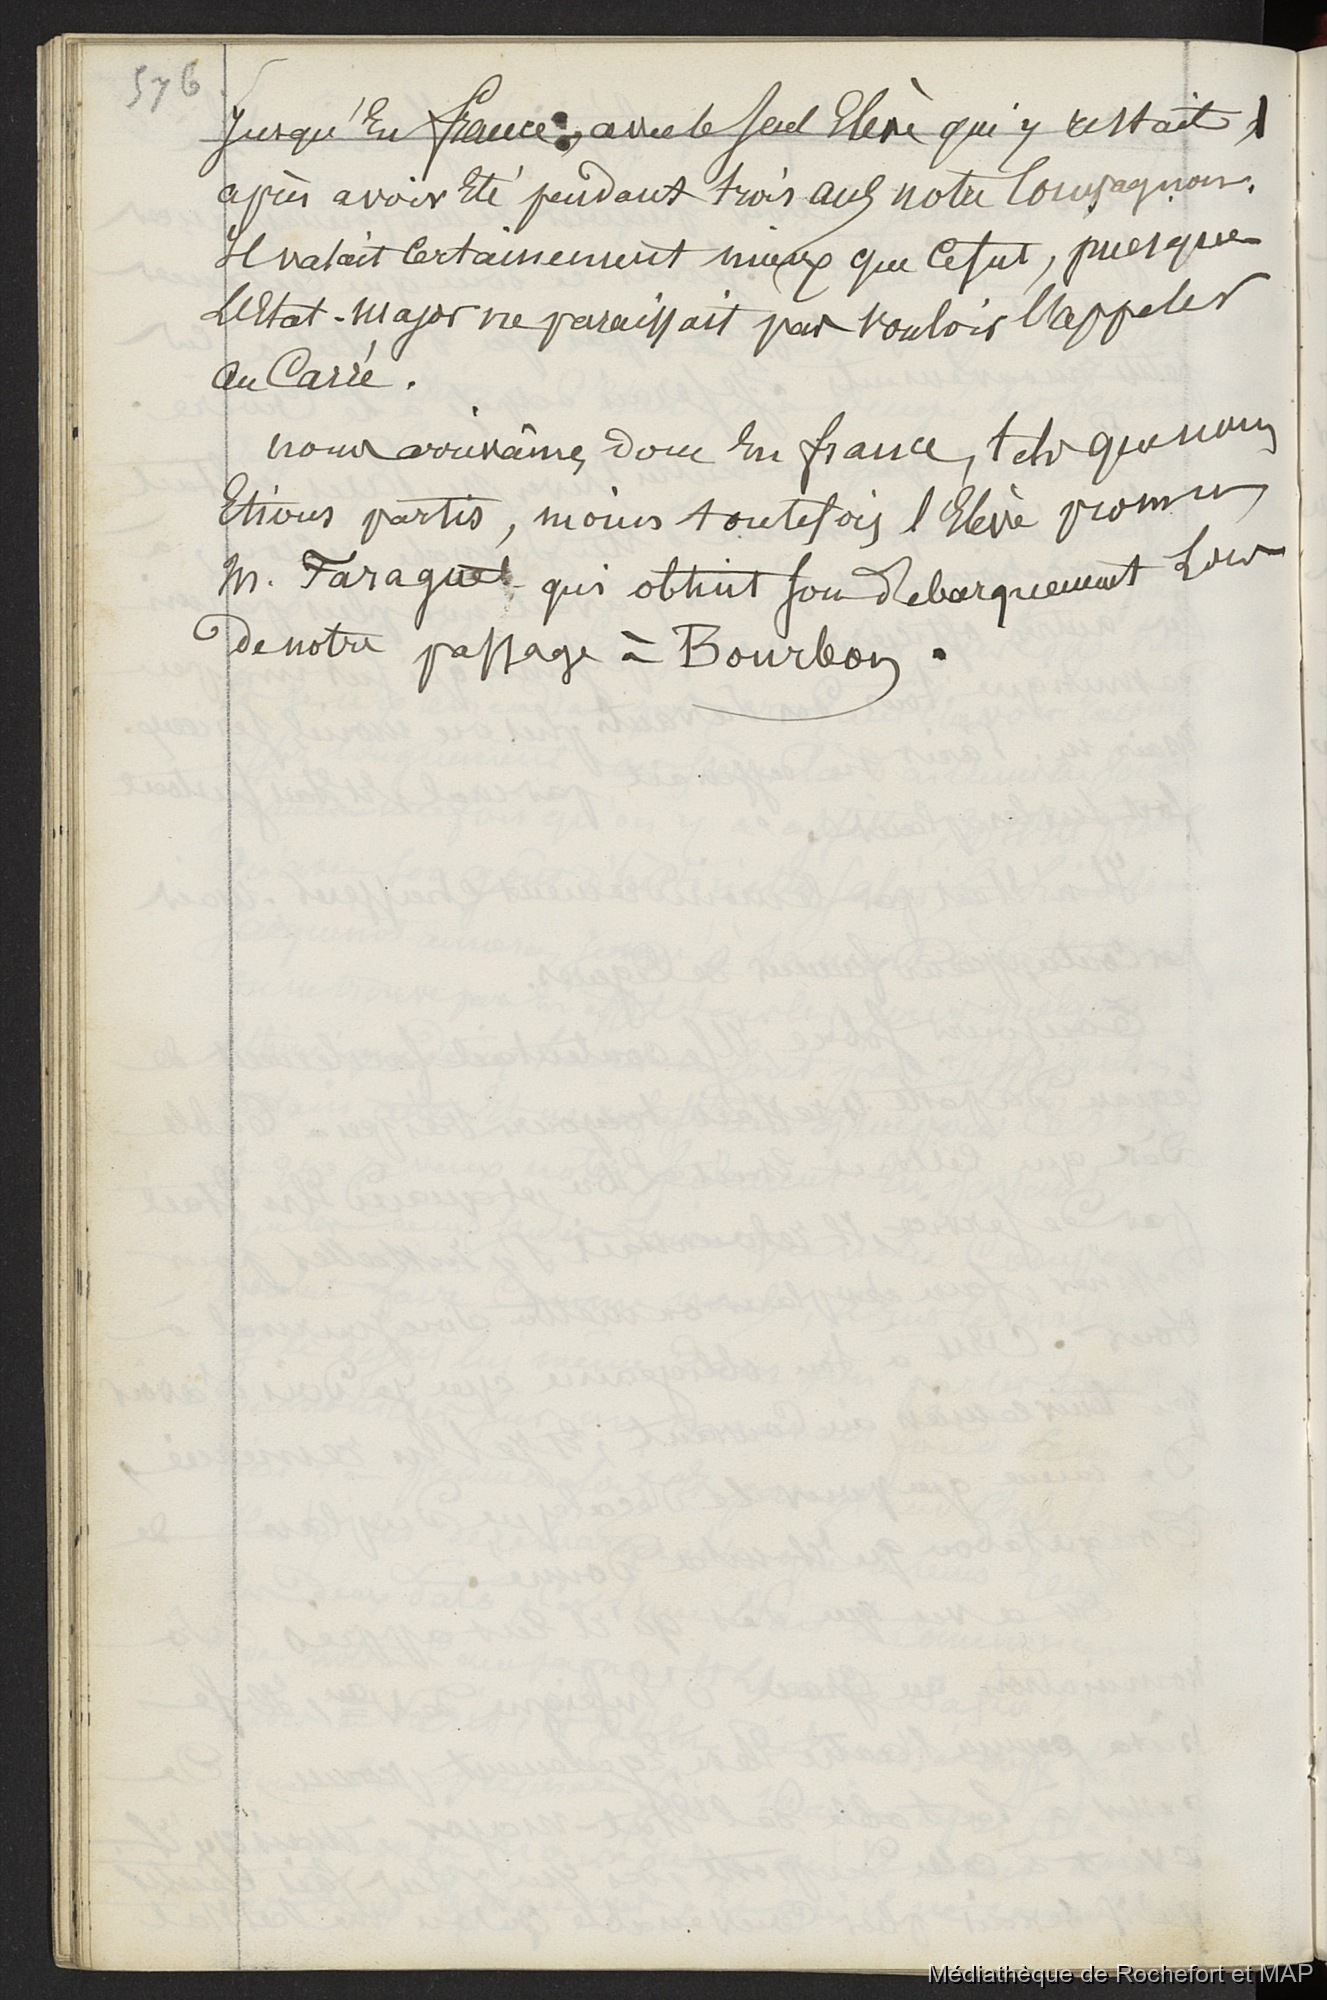 576.
Jusqu'En france, avec le seul Elève qui y restait,
après avoir Eté pendant trois ans notre Compagnon.
Il valait Certainement mieux que Ce fut, puisque
L'Etat-Major ne paraissait pas vouloir l'appeler
au Carré.
nous arrivâmes donc En france, tels que nous
Etions partis, moins toutefois l'Elève promu,
M. Faraguet qui obtint son debarquement Lors
de notre passage à Bourbon.
Médiathèque de Rochefort et MAP